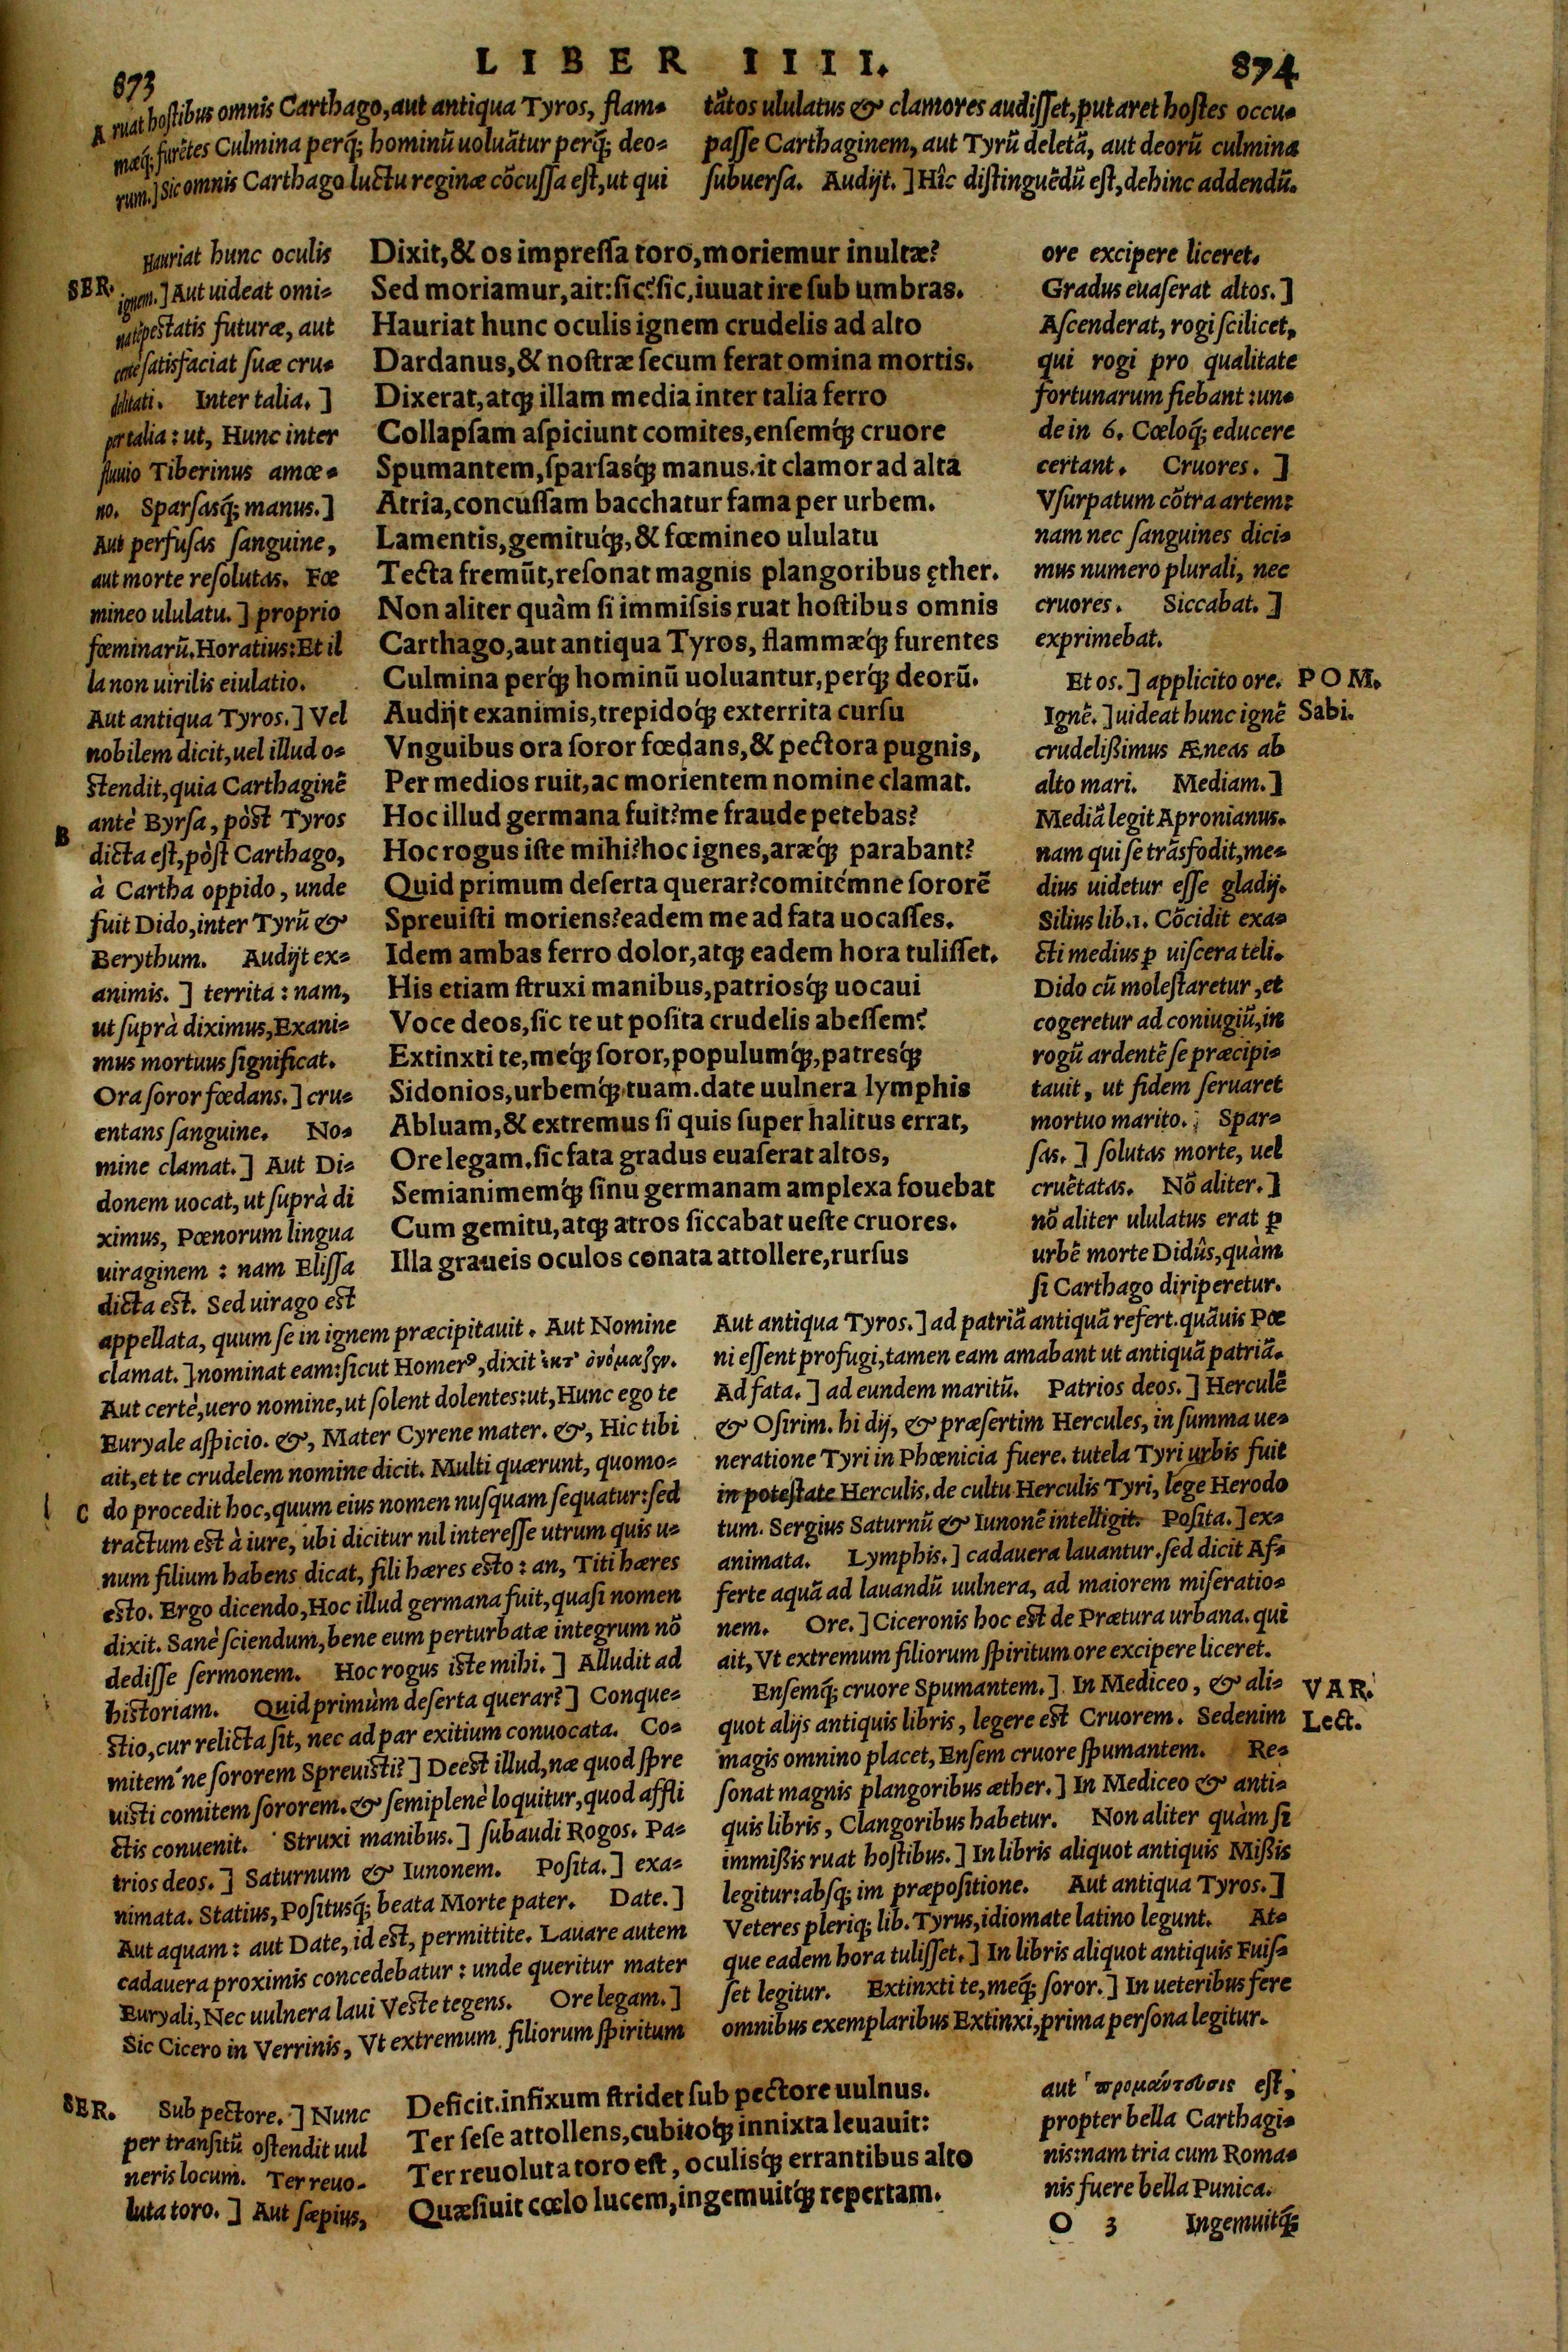 873
LIBER IIII.
874
A ruat hostibus omnis Carthago, aut antiqua Tyros, flam-
mæq́; furẽtes Culmina perq́; hominũ uoluãtur perq́; deo-
rum.] Sic omnis Carthago luctu reginæ cõcussa est, ut qui
tãtos ululatus & clamores audisset, putaret hostes occu-
passe Carthaginem, aut Tyrũ deletã, aut deorũ culmina
subuersa. Audijt.] Hîc distinguẽdũ est, dehinc addendũ.
Hauriat hunc oculis
SER. ignem.] Aut uideat omi-
na tẽpestatis futuræ, aut
certè satisfaciat suæ cru-
delitati. Inter talia.]
per talia: ut, Hunc inter
fluuio Tiberinus amœ-
no. Sparsasq́; manus.]
Aut perfusas sanguine,
aut morte resolutas. Fœ
mineo ululatu.] proprio
fœminarũ. Horatius: Et il
la non uirilis eiulatio.
Aut antiqua Tyros.] Vel
nobilem dicit, uel illud o-
stendit, quia Carthaginẽ
B antè Byrsa, pòst Tyros
dicta est, pòst Carthago,
à Cartha oppido, unde
fuit Dido, inter Tyrũ &
Berythum. Audijt ex-
animis.] territa: nam,
ut suprà diximus, Exani-
mus mortuus significat.
Ora soror fœdans.] cru-
entans sanguine. No-
mine clamat.] Aut Di-
donem uocat, ut suprà di
ximus, Pœnorum lingua
uiraginem: nam Elissa
dicta est. Sed uirago est
Dixit, & os impressa toro, moriemur inultæ?
Sed moriamur, ait: sic? sic, iuuat ire sub umbras.
Hauriat hunc oculis ignem crudelis ad alto
Dardanus, & nostræ secum ferat omina mortis.
Dixerat, atq; illam media inter talia ferro
Collapsam aspiciunt comites, ensemq́; cruore
Spumantem, sparsasq́; manus. it clamor ad alta
Atria, concussam bacchatur fama per urbem.
Lamentis, gemituq́;, & fœmineo ululatu
Tecta fremũt, resonat magnis plangoribus ęther.
Non aliter quàm si immissis ruat hostibus omnis
Carthago, aut antiqua Tyros, flammæq́; furentes
Culmina perq́; hominũ uoluantur, perq́; deorũ.
Audijt exanimis, trepidoq́; exterrita cursu
Vnguibus ora soror fœdans, & pectora pugnis,
Per medios ruit, ac morientem nomine clamat.
Hoc illud germana fuit? me fraude petebas?
Hoc rogus iste mihi? hoc ignes, aræq́; parabant?
Quid primum deserta querar? comitémne sororẽ
Spreuisti moriens? eadem me ad fata uocasses.
Idem ambas ferro dolor, atq; eadem hora tulisset.
His etiam struxi manibus, patriosq́; uocaui
Voce deos, sic te ut posita crudelis abessem?
Extinxti te, meq́; soror, populumq́;, patresq́;
Sidonios, urbemq́; tuam. date uulnera lymphis
Abluam, & extremus si quis super halitus errat,
Ore legam. sic fata gradus euaserat altos,
Semianimemq́; sinu germanam amplexa fouebat
Cum gemitu, atq; atros siccabat ueste cruores.
Illa graueis oculos conata attollere, rursus
ore excipere liceret.
Gradus euaserat altos.]
Ascenderat, rogi scilicet,
qui rogi pro qualitate
fortunarum fiebant: un-
de in 6. Cœloq́; educere
certant. Cruores.]
Vsurpatum cõtra artem:
nam nec sanguines dici-
mus numero plurali, nec
cruores. Siccabat.]
exprimebat.
Et os.] applicito ore. POM.
Ignẽ.] uideat hunc ignẽ Sabi.
crudelißimus Æneas ab
alto mari. Mediam.]
Mediã legit Apronianus.
nam qui se trãsfodit, me-
dius uidetur esse gladij.
Silius lib.1. Cõcidit exa-
cti medius ꝑ uiscera teli.
Dido cũ molestaretur, et
cogeretur ad coniugiũ, in
rogũ ardentẽ se præcipi-
tauit, ut fidem seruaret
mortuo marito. Spar-
sas.] solutas morte, uel
cruẽtatas. Nõ aliter.]
nõ aliter ululatus erat ꝑ
urbẽ morte Didûs, quàm
si Carthago diriperetur.
appellata, quum se in ignem præcipitauit. Aut Nomine
clamat.] nominat eam: sicut Homerꝰ, dixit ἐκτ' ὀνόμαζεν.
Aut certè, uero nomine, ut solent dolentes: ut, Hunc ego te
Euryale aspicio. &, Mater Cyrene mater. &, Hic tibi
ait, et te crudelem nomine dicit. Multi quærunt, quomo-
C do procedit hoc, quum eius nomen nusquam sequatur: sed
tractum est à iure, ubi dicitur nil interesse utrum quis u-
num filium habens dicat, fili hæres esto: an, Titi hæres
esto. Ergo dicendo, Hoc illud germana fuit, quasi nomen
dixit. Sanè sciendum, bene eum perturbatæ integrum nõ
dedisse sermonem. Hoc rogus iste mihi.] Alludit ad
historiam. Quid primùm deserta querar?] Conque-
stio, cur relicta sit, nec ad par exitium conuocata. Co-
mitem'ne sororem Spreuisti?] Deest illud, næ quod spre
uisti comitem sororem. & semiplenè loquitur, quod affli
ctis conuenit. Struxi manibus.] subaudi Rogos. Pa-
trios deos.] Saturnum & Iunonem. Posita.] exa-
nimata. Statius, Positusq́; beata Morte pater. Date.]
Aut aquam: aut Date, id est, permittite. Lauare autem
cadauera proximis concedebatur: unde queritur mater
Euryali, Nec uulnera laui Veste tegens. Ore legam.]
Sic Cicero in Verrinis, Vt extremum filiorum spiritum
Aut antiqua Tyros.] ad patriã antiquã refert. quãuis Pœ
ni essent profugi, tamen eam amabant ut antiquã patriã.
Ad fata.] ad eundem maritũ. Patrios deos.] Herculẽ
& Osirim. hi dij, & præsertim Hercules, in summa ue-
neratione Tyri in Phœnicia fuere. tutela Tyri urbis fuit
in potestate Herculis. de cultu Herculis Tyri, lege Herodo
tum. Sergius Saturnũ & Iunonẽ intelligit. Posita.] ex-
animata. Lymphis.] cadauera lauantur. sed dicit Af-
ferte aquã ad lauandũ uulnera, ad maiorem miseratio-
nem. Ore.] Ciceronis hoc est de Prætura urbana. qui
ait, Vt extremum filiorum spiritum ore excipere liceret.
Ensemq́; cruore Spumantem.] In Mediceo, & ali- VAR.
quot alijs antiquis libris, legere est Cruorem. Sedenim Lect.
magis omnino placet, Ensem cruore spumantem. Re-
sonat magnis plangoribus æther.] In Mediceo & anti-
quis libris, Clangoribus habetur. Non aliter quàm si
immißis ruat hostibus.] In libris aliquot antiquis Mißis
legitur: absq; im præpositione. Aut antiqua Tyros.]
Veteres pleriq; lib. Tyrus, idiomate latino legunt. At-
que eadem hora tulisset.] In libris aliquot antiquis Fuis-
set legitur. Extinxti te, meq́; soror.] In ueteribus fere
omnibus exemplaribus Extinxi, prima persona legitur.
SER. Sub pectore.] Nunc
per transitũ ostendit uul
neris locum. Ter reuo-
luta toro.] Aut sæpius,
Deficit. infixum stridet sub pectore uulnus.
Ter sese attollens, cubitoq́; innixta leuauit:
Ter reuoluta toro est, oculisq́; errantibus alto
Quæsiuit cœlo lucem, ingemuitq́; repertam.
aut προμαύτευσις est,
propter bella Carthagi-
nis: nam tria cum Roma-
nis fuere bella Punica.
O 3 Ingemuitq́;